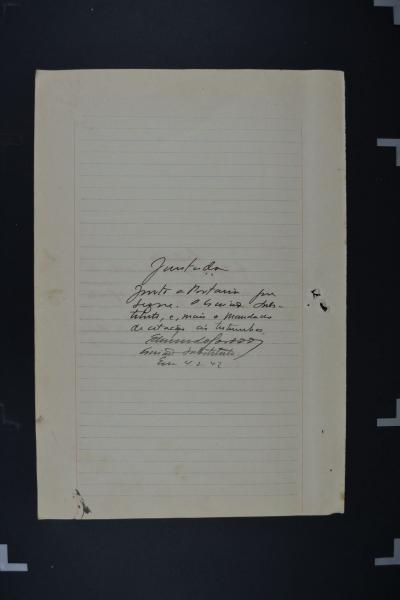 Juntada
Junto a Portaria que
segue. O Escrivão Subs-
tituto, e, mais o mandado
de citação às testemunhas,
Escrivão Substituto,
Em 4.2.42